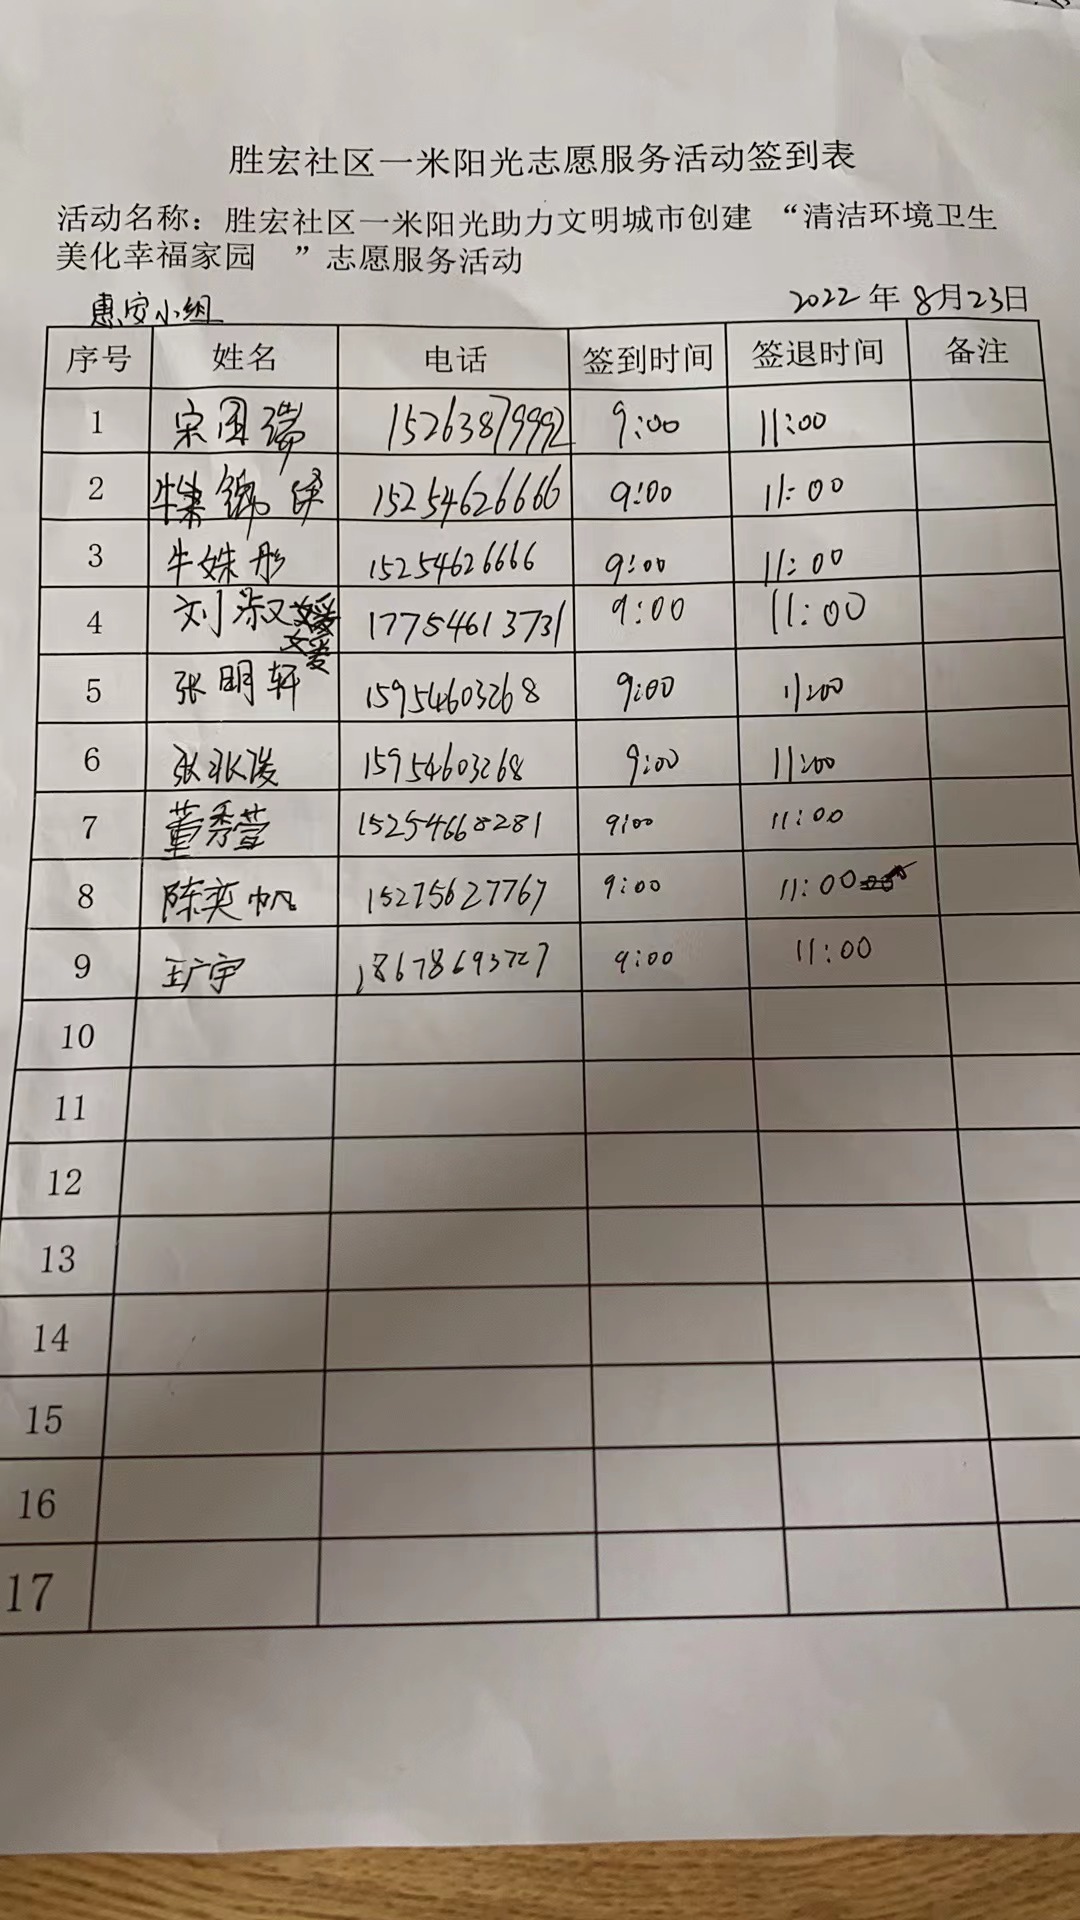 胜宏社区一米阳光志愿服务活动签到表
活动名称：胜宏社区一米阳光助力文明城市创建 “清洁环境卫生
美化幸福家园 ”志愿服务活动
惠安小组 2022年8月23日
序号 姓名 电话 签到时间 签退时间 备注
1 宋国瑞 15263879992 9:00 11:00
2 牛锦 15254626666 9:00 11:00
3 牛姝彤 15254626666 9:00 11:00
4 刘淑媛 17754613731 9:00 11:00
5 张明轩 15954603268 9:00 11:00
6 张 15954603268 9:00 11:00
7 董秀萱 15254668281 9:00 11:00
8 陈奕帆 15275627767 9:00 11:00
9 王广宇 18678693727 9:00 11:00
10
11
12
13
14
15
16
17